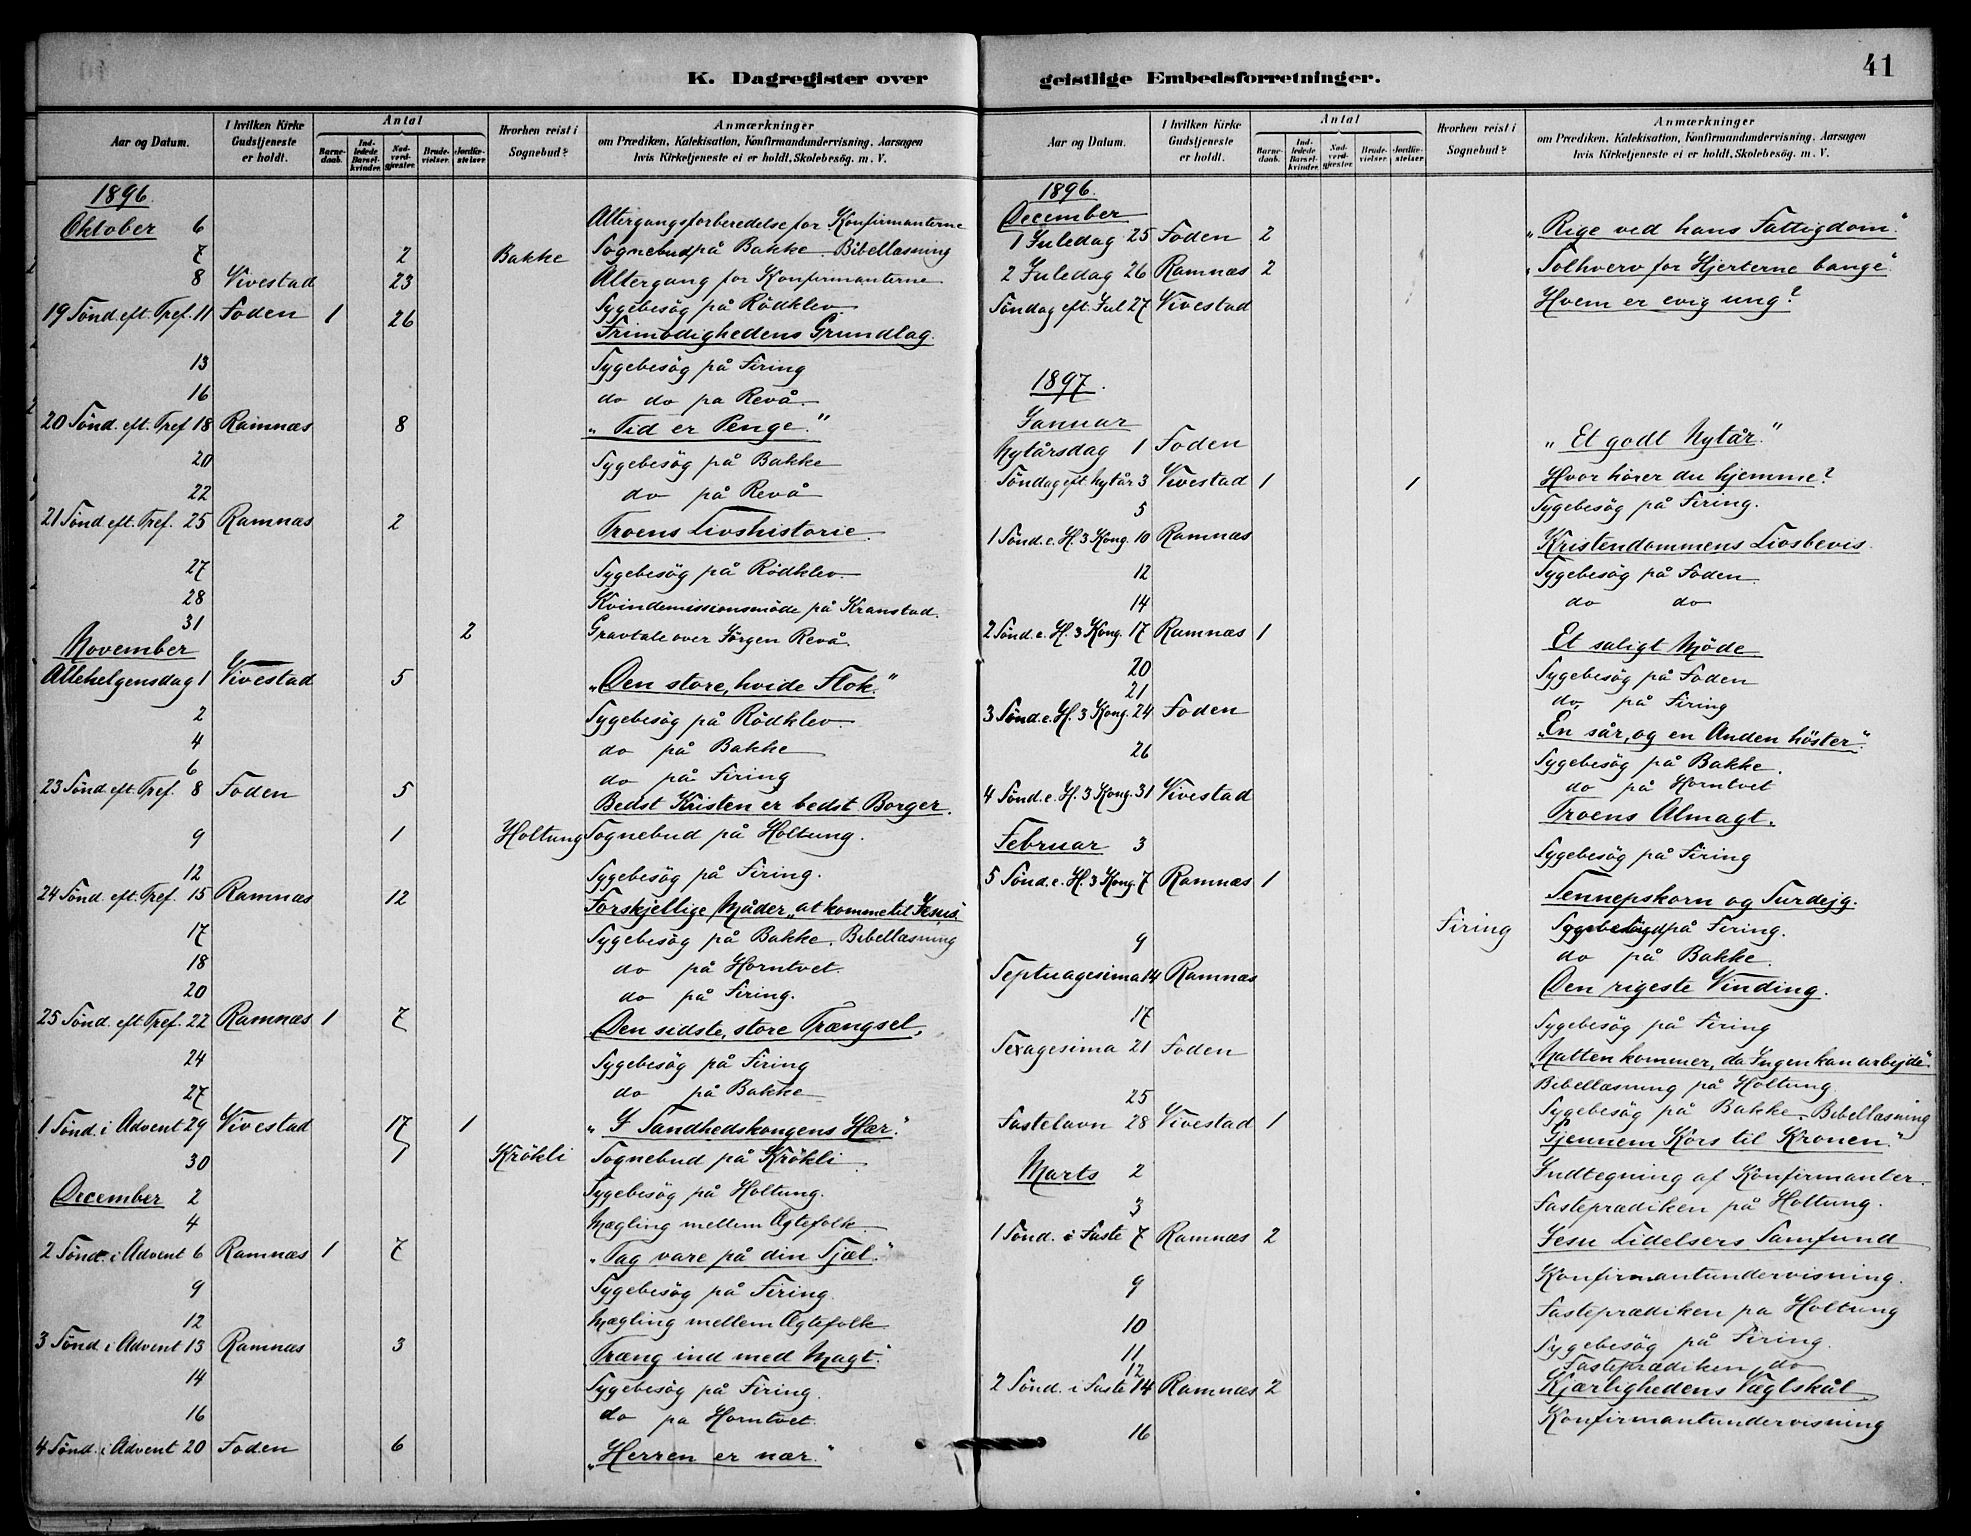 K. Dagregister over
Aar og Datum.
I hvilken Kirke Gudstjeneste er holdt.
Antal
Barnedaab.
Indledede Barselkvinder.
Nadverdgjæster.
Brudevielser.
Jordfæstelser
Hvorhen reist i Sognebud?
Anmærkninger
om Prædiken, Katekisation, Konfirmandundervisning, Aarsagen
hvis Kirketjeneste ei er holdt, Skolebesøg. m. V.
1896.
Oktober 6 Altergangsforberedelse for Konfirmanterne
7 2 Bakke Sognebud på Bakke. Bibellæsning
8 Vivestad 23 Altergang for Konfirmanterne
Sygebesög på Rödklev
19 Sönd. eft. Tref. 11 Foden 1 26 Frimodighedens Grundlag.
13 Sygebesög på Firing
16 do do pa Revå
20 Sönd. eft. Tref 18 Ramnæs 8 „Tid er Penge."
20 Sygebesög på Bakke
22 do på Revå
21 Sönd. eft. Tref. 25 Ramnæs 2 Troens Livshistorie.
27 Sygebesög på Rödklev
28 Kvindemissionsmöde på Kranstad.
31 2 Gravtale over Jörgen Revå
November
Allehelgensdag 1 Vivestad 5 „Den store, hvide Flok."
2 Sygebesög på Rödklev
4 do på Bakke
6 do på Firing
23 Sönd eft. Tref. 8 Foden 5 Bedst Kristen er bedst Borger.
9 1 Holtung Sognebud på Holtung.
12 Sygebesög på Firing.
24 Sönd. eft. Tref. 15 Ramnæs 12 Forskjellige Måder „at komme til Jesus"
17 Sygebesög på Bakke. Bibellæsning
18 do på Horntvet.
20 do på Firing.
25 Sönd. eft Tref. 22 Ramnæs 1 7 Den sidste, store Trængsel.
24 Sygebesög på Firing
27 do på Bakke
1 Sönd. i Advent 29 Vivestad 17 1 „I Sandhedskongens Hær."
30 1 Krökli Sognebud på Krökli
December 2 Sygebesög på Holtung.
4 Mægling mellem Ægtefolk
2 Sönd. i Advent 6 Ramnæs 1 7 „Tag vare på din Sjæl."
9 Sygebesög på Firing.
12 Mægling mellem Ægtefolk
3 Sönd. i Advent 13 Ramnæs 3 Træng ind med Magt.
14 Sygebesög på Firing.
16 do pa Horntvet.
4 Sönd. i Advent 20 Foden 6 „Herren er nær."
geistlige Embedsforretninger.
41
Aar og Datum.
I hvilken Kirke Gudstjeneste er holdt.
Antal
Barnedaab.
Indledede Barselkvinder.
Nadverdgjæster.
Brudevielser.
Jordfæstelser
Hvorhen reist i Sognebud?
Anmærkninger
om Prædiken, Katekisation, Konfirmandundervisning, Aarsagen
hvis Kirketjeneste ei er holdt, Skolebesøg. m. V.
1896.
December
1 Juledag 25 Foden 2 „Rige ved hans Fattigdom."
2 Juledag 26 Ramnæs 2 „Solhverv for Hjerterne bange".
Söndag eft. Jul 27 Vivestad Hvem er evig ung?
1897.
Januar
Nytårsdag 1 Foden „Et godt Nytår."
Söndag eft Nytår 3 Vivestad 1 1 Hvor hörer du hjemme?
5 Sygebesög på Firing.
1 Sönd. e. H. 3 Kong. 10 Ramnæs Kristendommens Livsbevis.
12 Sygebesög på Foden
14 do do
2 Sönd. e. H. 3 Kong. 17 Ramnæs 1 Et saligt Möde
20 Sygebesög på Foden
21 do på Firing
3 Sönd. e. H. 3 Kong. 24 Foden „En sår, og en Anden höster".
26 Sygebesög på Bakke.
do på Horntvet
4 Sönd. e. H. 3 Kong. 31 Vivestad Troens Almagt.
Februar 3 Sygebesög på Firing
5 Sönd. e. H. 3 Kong. 7 Ramnæs 1 Sennepskorn og Surdejg.
9 Firing på Firing.
do på Bakke.
Septuagesima 14 Ramnæs Den rigeste Vinding.
17 Sygebesög på Firing
Sexagesima 21 Foden „Natten kommer, da Ingen kan arbejde".
25 Bibellæsning på Holtung.
Sygebesög på Bakke. Bibellæsning
Fastelavn 28 Vivestad 1 Gjennem Kors til Kronen."
Marts 2 Indtegning af Konfirmanter.
3 Fasteprædiken på Holtung.
1 Sönd. i Faste 7 Ramnæs 2 Jesu Lidelsers Samfund
9 Konfirmantundervisning.
10 Fasteprædiken pa Holtung
11 Sygebesög på Firing.
12 Fasteprædiken do
2 Sönd. i Faste 14 Ramnæs 2 Kjærlighedens Vægtskål
16 Konfirmantundervisning